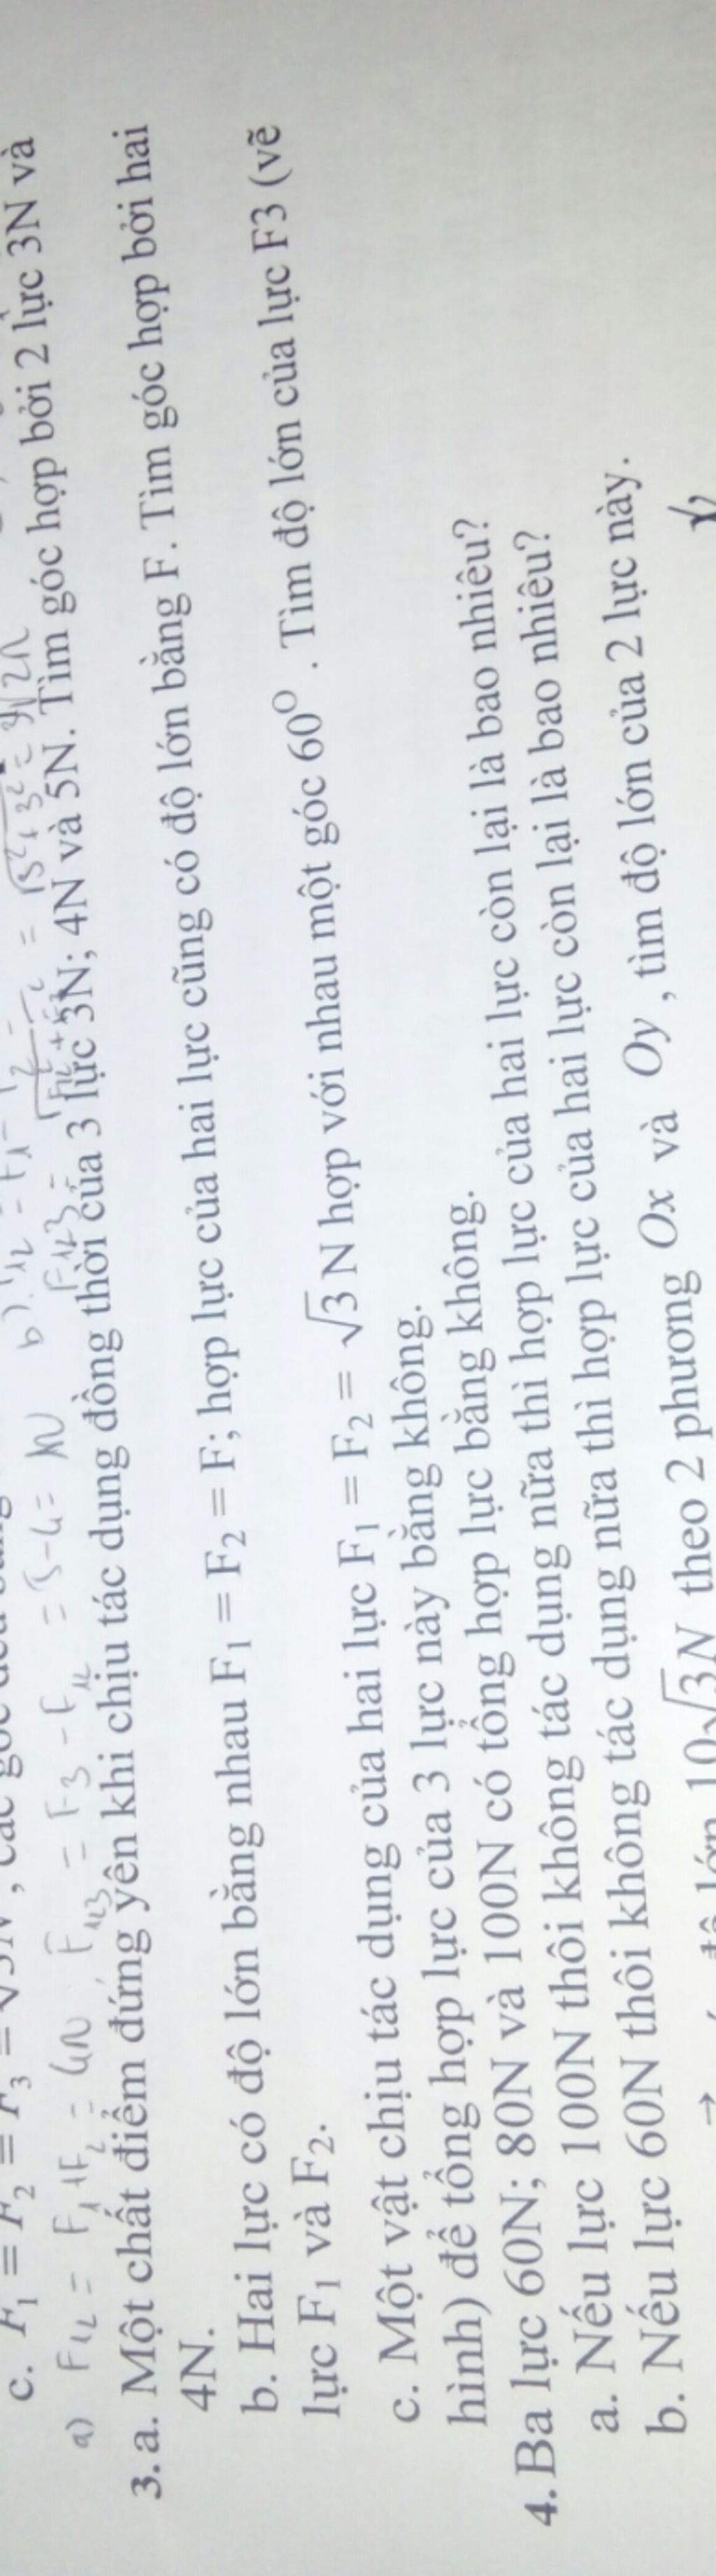 c. F₁ = F₂ = F₃ = √3N, các góc đều
a) F₁₂ = F₁+F₂ = 4N F₁₂₃ = F₃ - F₁₂ = 5-4 = 1N b) F₁₂ = F₁ -
F₁₂₃ = = √3²+3² =
3. a. Một chất điểm đứng yên khi chịu tác dụng đồng thời của 3 lực 3N; 4N và 5N. Tìm góc hợp bởi 2 lực 3N và
4N.
b. Hai lực có độ lớn bằng nhau F₁ = F₂ = F; hợp lực của hai lực cũng có độ lớn bằng F. Tìm góc hợp bởi hai
lực F₁ và F₂.
c. Một vật chịu tác dụng của hai lực F₁ = F₂ = √3 N hợp với nhau một góc 60⁰ . Tìm độ lớn của lực F3 (vẽ
hình) để tổng hợp lực của 3 lực này bằng không.
4. Ba lực 60N; 80N và 100N có tổng hợp lực bằng không.
a. Nếu lực 100N thôi không tác dụng nữa thì hợp lực của hai lực còn lại là bao nhiêu?
b. Nếu lực 60N thôi không tác dụng nữa thì hợp lực của hai lực còn lại là bao nhiêu?
độ lớn 10√3N theo 2 phương Ox và Oy , tìm độ lớn của 2 lực này.